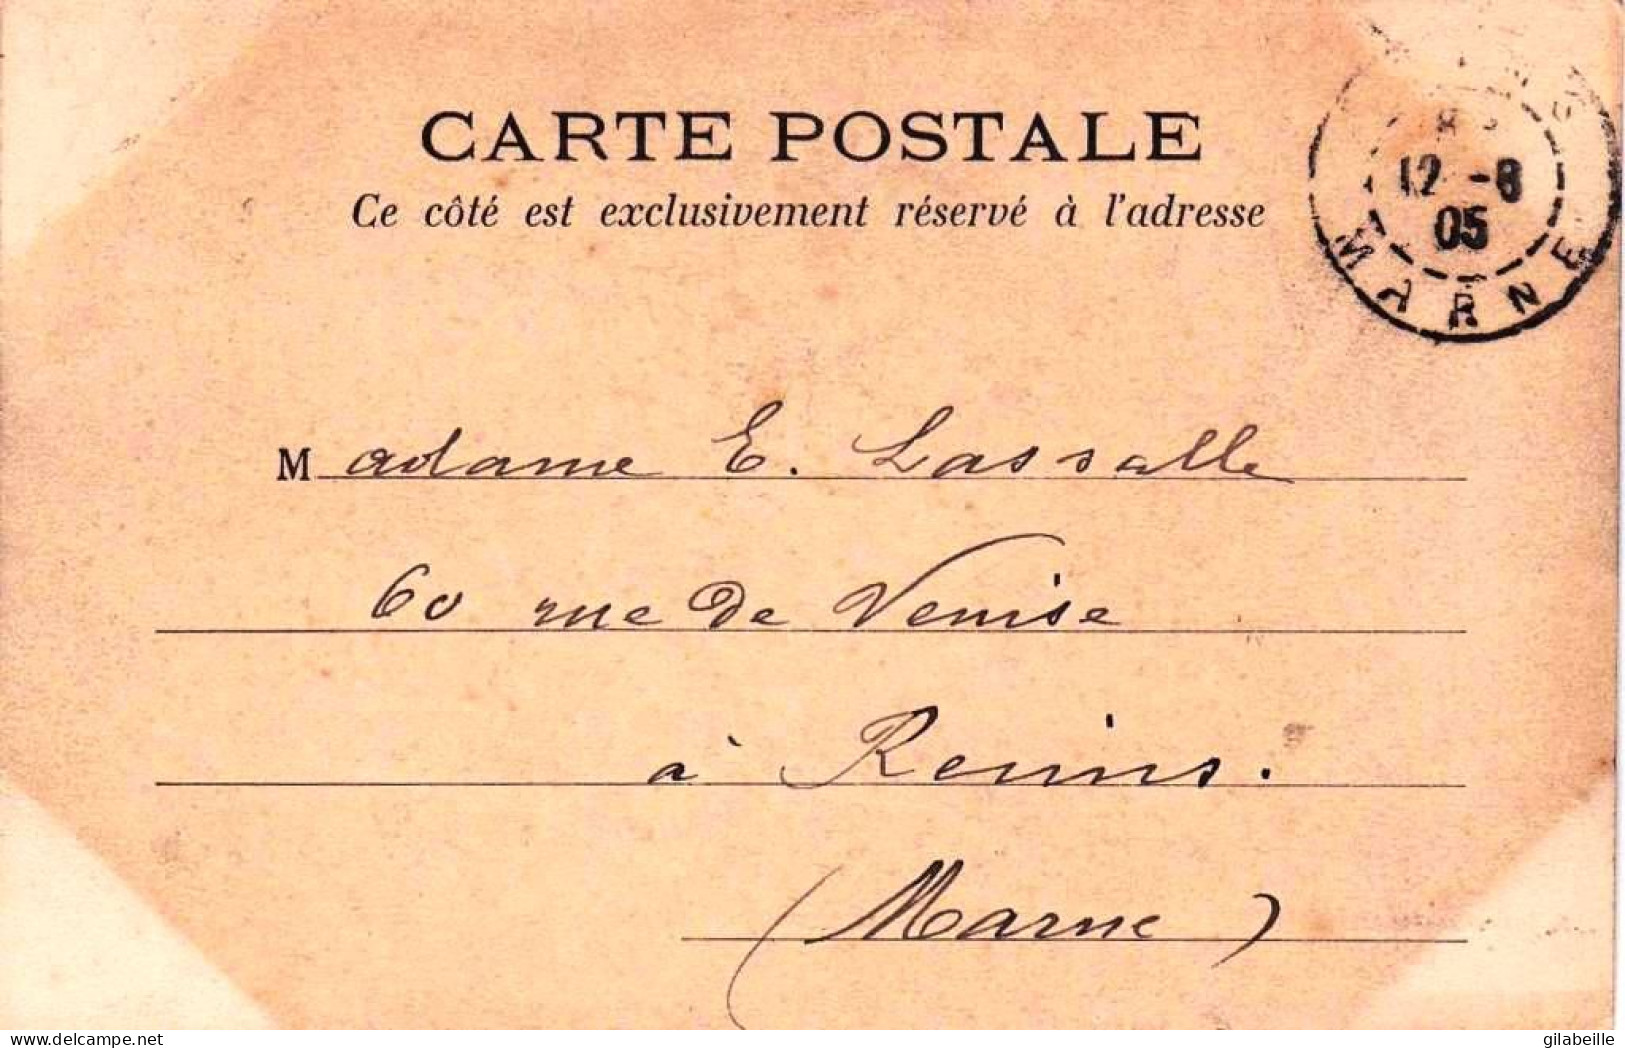 CARTE POSTALE
Ce côté est exclusivement réservé à l'adresse
12 -8
05
MARNE
Madame E. Lassalle
60 rue de Venise
à Reims.
(Marne)
delcampe.net
gilabeille